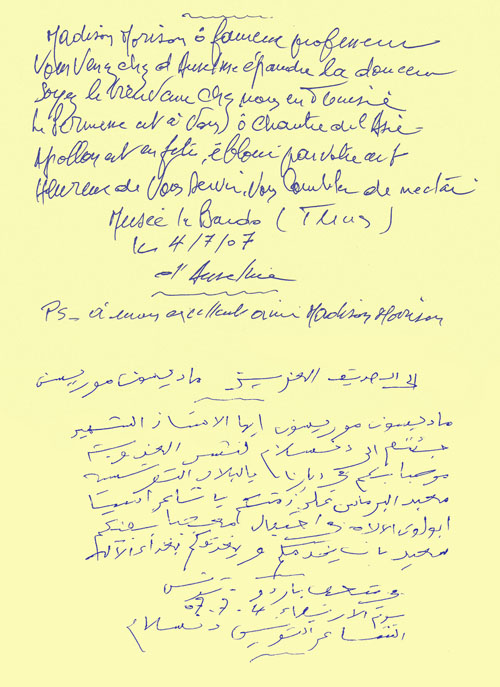 Madison Morison ô fameux professeur
Vous venez chez d'Anselme épandre la douceur
Soyez le bienvenu chez nous en Tunisie
Le Permesse est à Vous, ô chantre de l'Asie
Apollon est en fête, ébloui par votre art
Heureux de Vous servir, Vous combler de nectar
Musée le Bardo (Tunis)
le 4/7/07
d'Anselme
PS_ à mon excellent ami Madison Morison
إلى الصديق العزيز ماديسون موريسن
ماديسون موريسون أيها الأستاذ الشهير
جئتم إلى دنسلام لنشر العذوبة
مرحبا بكم في ديارنا بالبلاد التونسية
معبد البرماس ملك لكم يا شاعر آسيا
أبولون الإله في احتفال بفنكم
سعيد بأن يخدمكم و
في متحف باردو تونس
يوم الأربعاء 4 - 7 - 07
الشاعر التونسي دنسلام